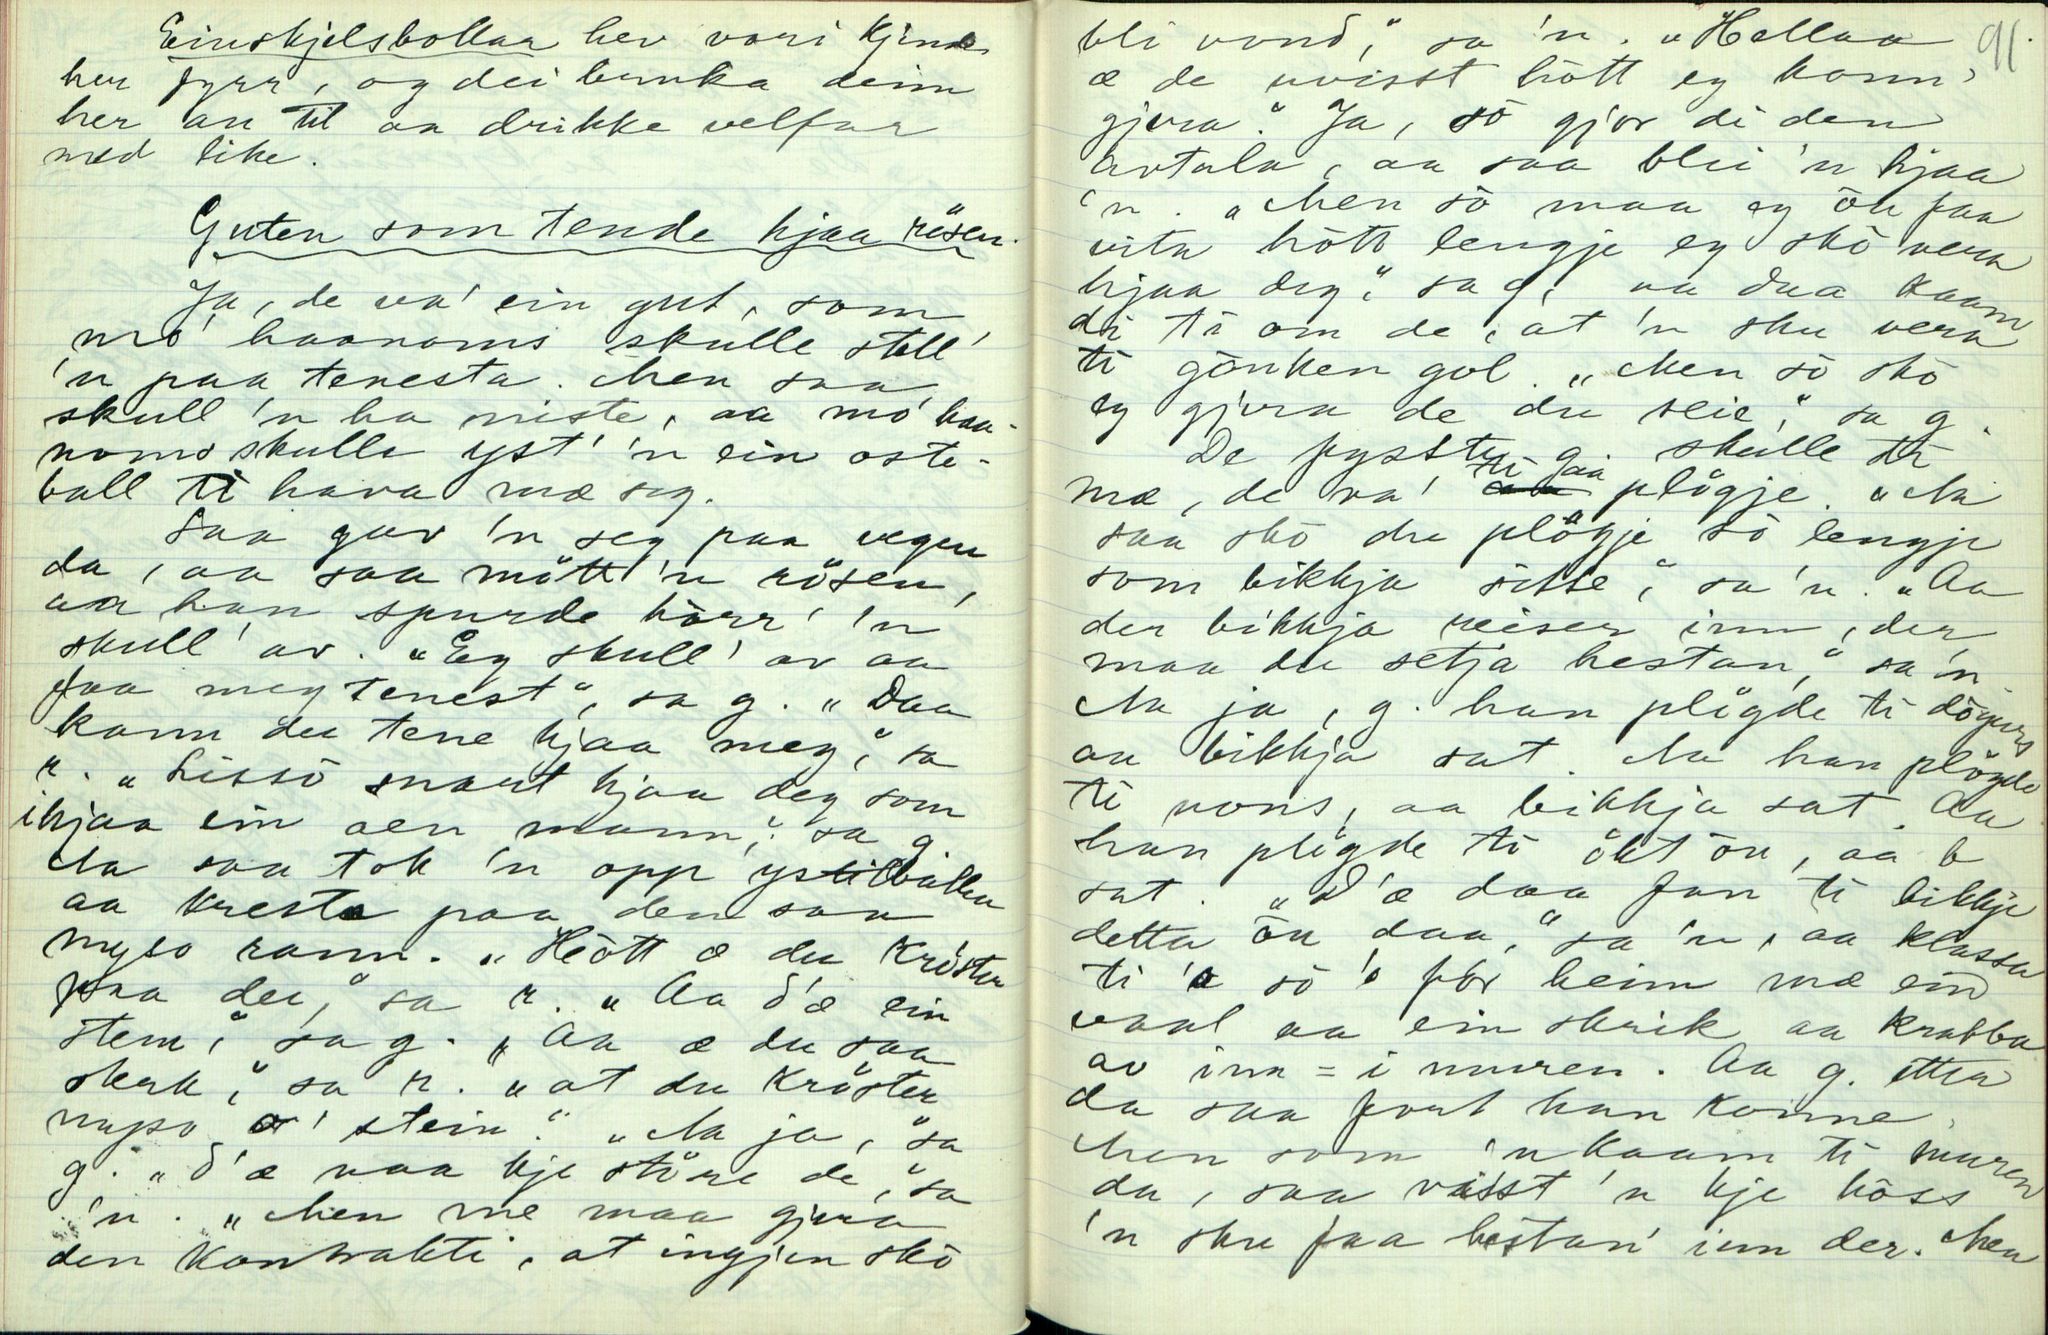 Einskjelsbollar hev vori kjende
her fyrr, og dei bruka deim
her an til aa drikke velfar
med like.
Guten som tende hjaa rösen.
Ja, de va' ein gut, som
mo' haanoms skulle stell'
'n paa tenesta. Men saa
skull 'n ha niste, aa mo' haa-
noms skulle yst' 'n ein oste-
ball ti hava mæ seg.
Saa gav 'n seg paa vegen
da, aa saa mött 'n rösen,
aa han spurde hörr' 'n
skull' av. „Eg skull' av aa
faa meg tenest", sa g. „Daa
kann du tene hjaa meg," sa
r. „Lissö snart hjaa deg som
ihjaa ein aen mann," sa g.
Na saa tok 'n opp ystiballen
aa kresta paa den saa
myso rann. „Hött æ du kröster
paa du," sa r. „Aa d'æ ein
stein," sa g. „Aa æ du saa
sterk," sa r. „at du kröster
myso o' stein." „Na ja," sa
g. „d'æ naa kje större de," sa
'n. „Men me maa gjera
den kontrakti, at ingjen skö
91.
bli vond," sa 'n. „Hellaa
æ de uvisst hött eg kann
gjera." Ja, sö gjor di den
avtala, aa saa blei 'n hjaa
'n. „Men sö maa eg öu faa
vita hött lengje eg skö vera
hjaa deg," sa g, aa daa kaam
di ti om de, at 'n sku vera
ti gauken gol. „Men sö skö
eg gjera de du seie," sa g.
De fyssty g. skulle ti
mæ, de va' ti aa plögje. „Na
saa skö du plögje sö lengje
som bikkja sitte," sa 'n. „Aa
der bikkja reiser inn, der
maa du setja hestan," sa 'n.
Na ja, g. han plögde ti dögurs
aa bikkja sat. Na han plögde
ti nons, aa bikkja sat. Aa
han plögde ti ökt öu, aa b
sat. „D'æ daa fan ti bikkje
detta öu daa," sa 'n, aa klassa
ti 'e sö 'e för heim mæ ein
vaal aa ein skrik aa krabba
av inn = i muren. Aa g. etter
da saa fort han konne.
Men som 'n kaam ti muren
da, saa visst 'n kje höss
'n sku faa hestan' inn der. Men